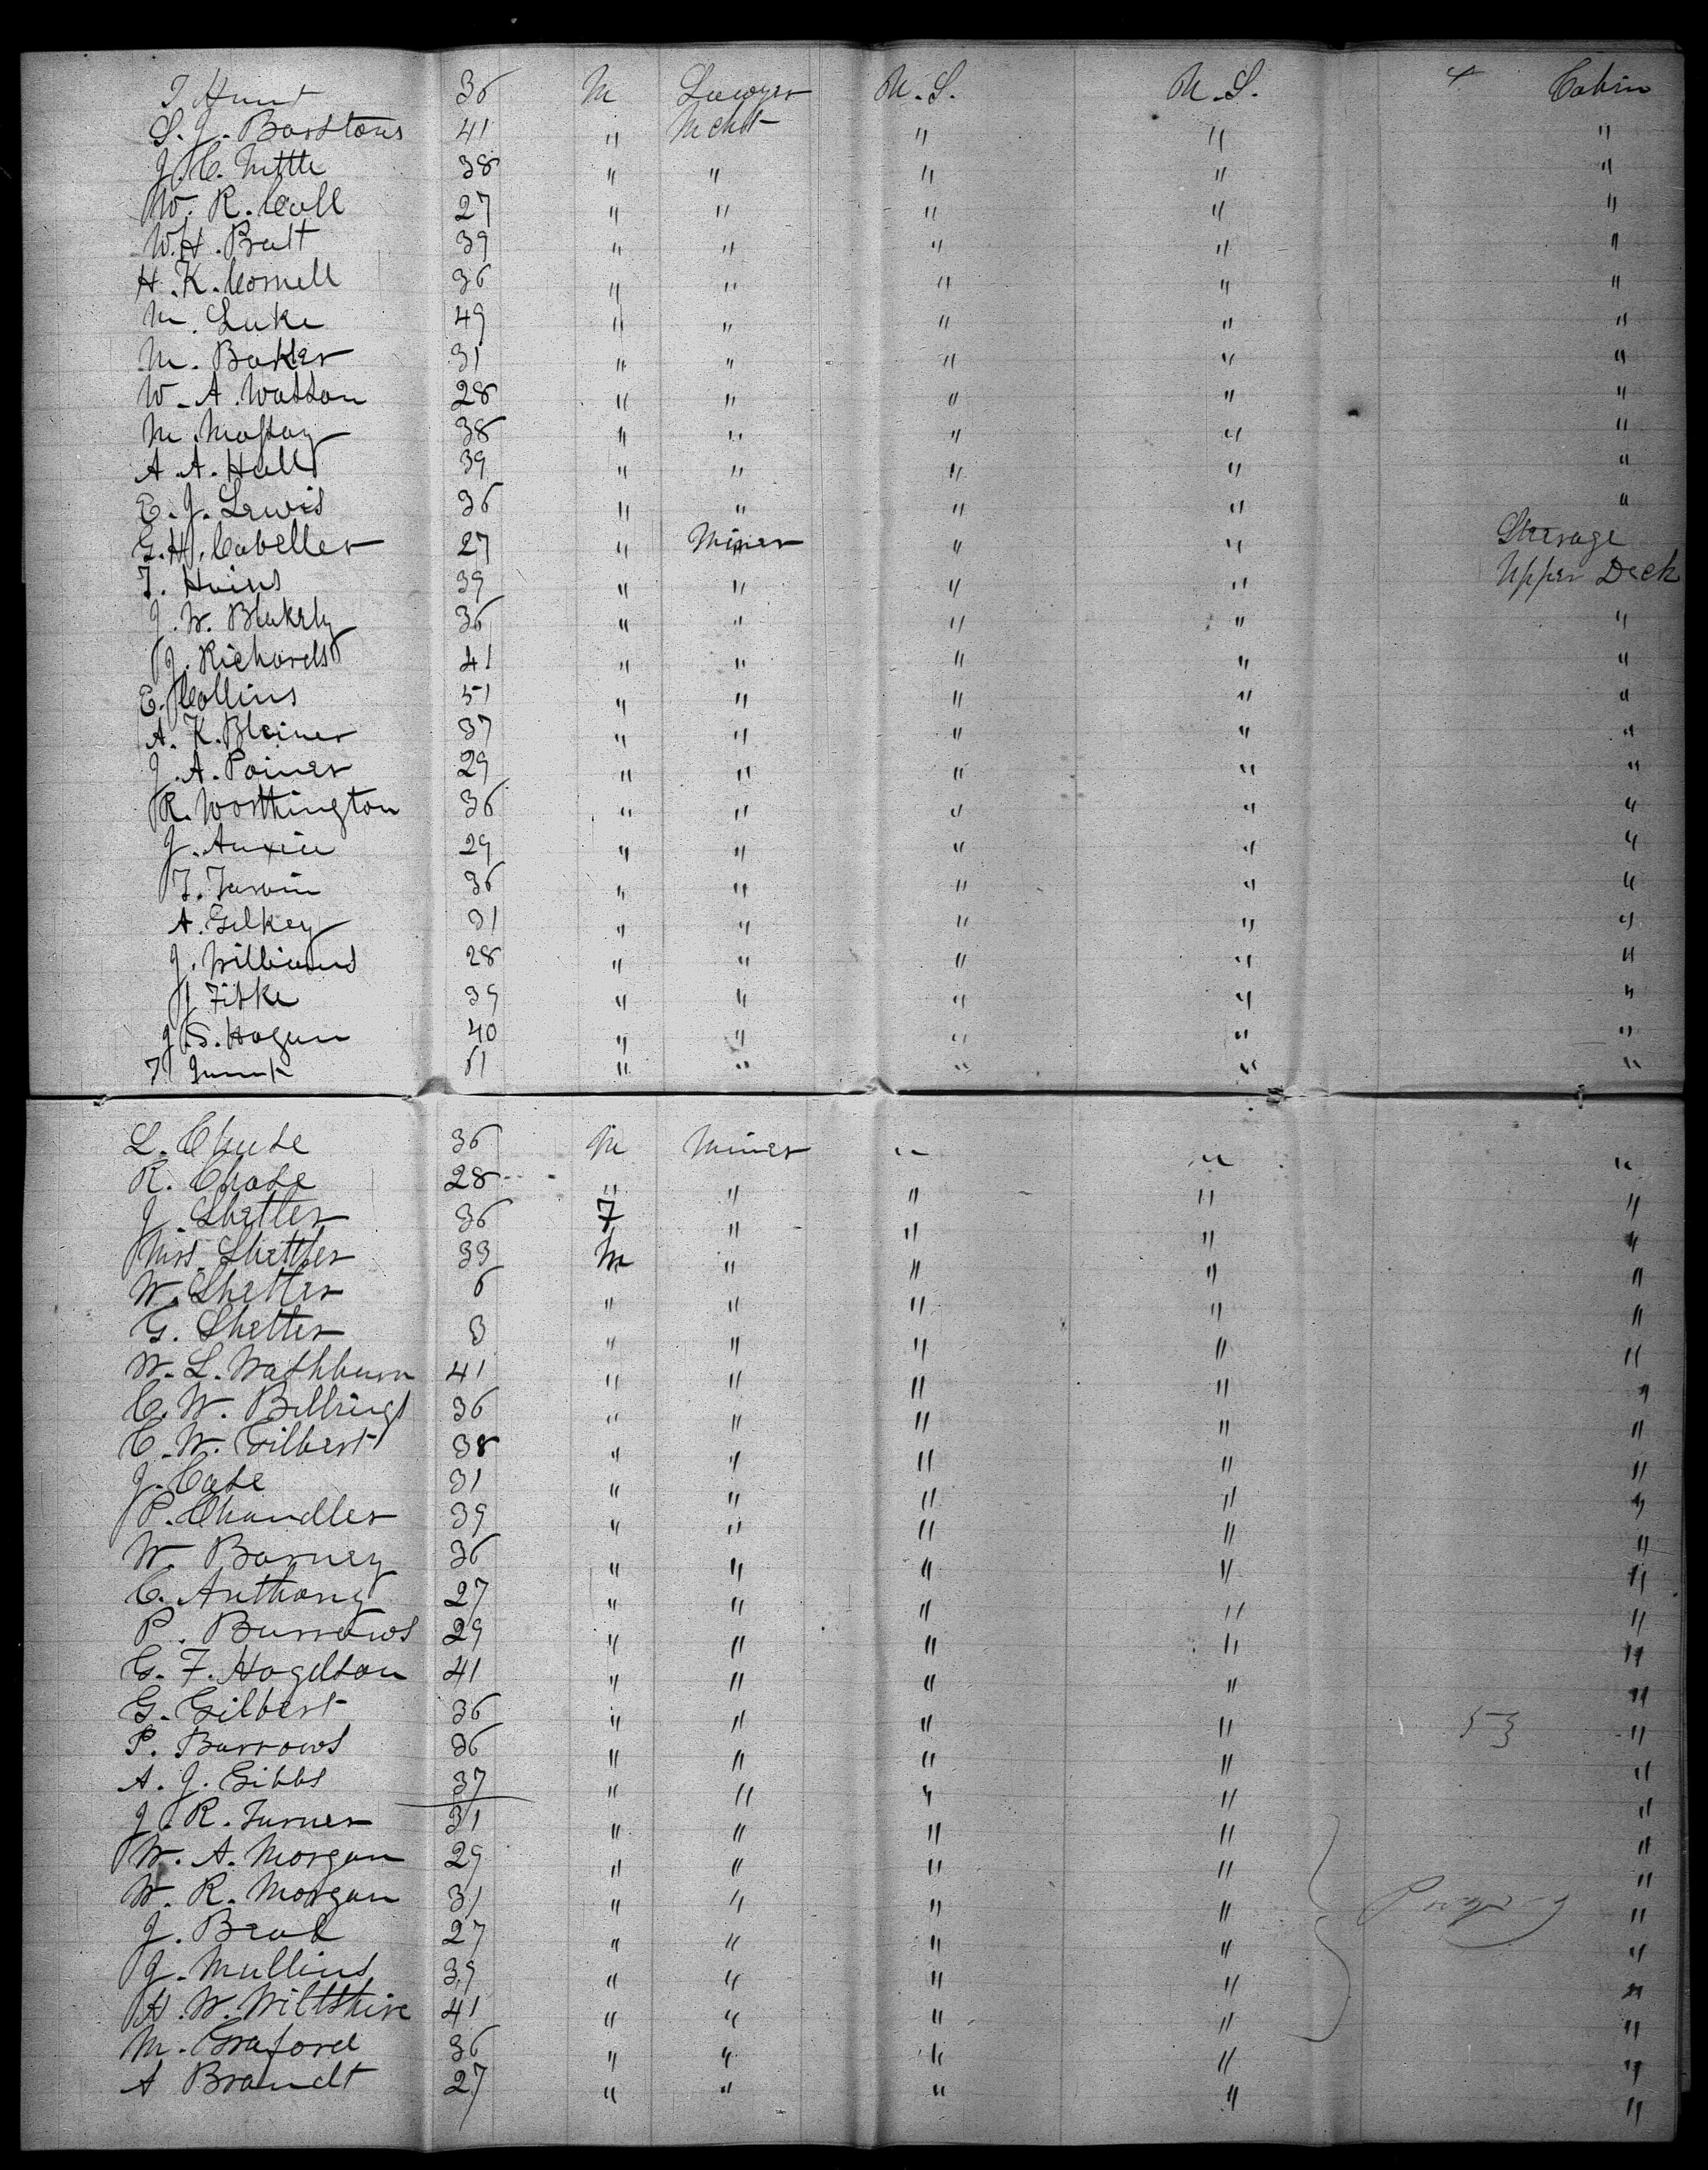 T Hunt 36 M Lawyer U.S. U.S. 4 Cabin
S. J. Barstow 41 " Mcht " " "
J. C. Little 38 " " " " "
W. R. Call 27 " " " " "
W. H. Pratt 39 " " " " "
H. K. Cornell 36 " " " " "
M. Luke 49 " " " " "
M. Baker 31 " " " " "
W. A. Watson 28 " " " " "
M. 38 " " " " "
A. A. Hall 39 " " " " "
E. J. Lewis 36 " " " " "
G. H. Cabeller 27 " Miner " " Steerage
T. Hains 39 " " " " Upper Deck
J. W. Blakely 36 " " " " "
J. Richards 41 " " " " "
E. Collins 51 " " " " "
A. K. Bleiner 37 " " " " "
J. A. Poiner 29 " " " " "
R. Worthington 36 " " " " "
J. 29 " " " " "
T. 36 " " " " "
A. Gilkey 31 " " " " "
J. Williams 28 " " " " "
J. Fiske 39 " " " " "
J. S. Hogan 40 " " " " "
51 " " " " "
L. Chase 36 M Miner " " "
R. Chase 28 " " " " "
J. Shetter 36 F " " " "
Mrs. Shetter 33 M " " " "
W. Shetter 6 " " " " "
G. Shetter 3 " " " " "
W. L. Washburn 41 " " " " "
C. W. Billings 36 " " " " "
C. W. Gilbert 38 " " " " "
J. Case 31 " " " " "
P. Chandler 39 " " " " "
W. Barney 36 " " " " "
C. Anthony 27 " " " " "
P. Burrows 29 " " " " "
G. F. Hogelson 41 " " " " "
G. Gilbert 36 " " " " "
P. Burrows 36 " " " " 53 "
A. J. Gibbs 37 " " " " "
J. R. Turner 31 " " " " "
W. A. Morgan 29 " " " " "
W. R. Morgan 31 " " " " "
J. Beal 27 " " " " "
J. Mullins 39 " " " " "
A. W. Wiltshire 41 " " " " "
M. Graford 36 " " " " "
A Brandt 27 " " " " "